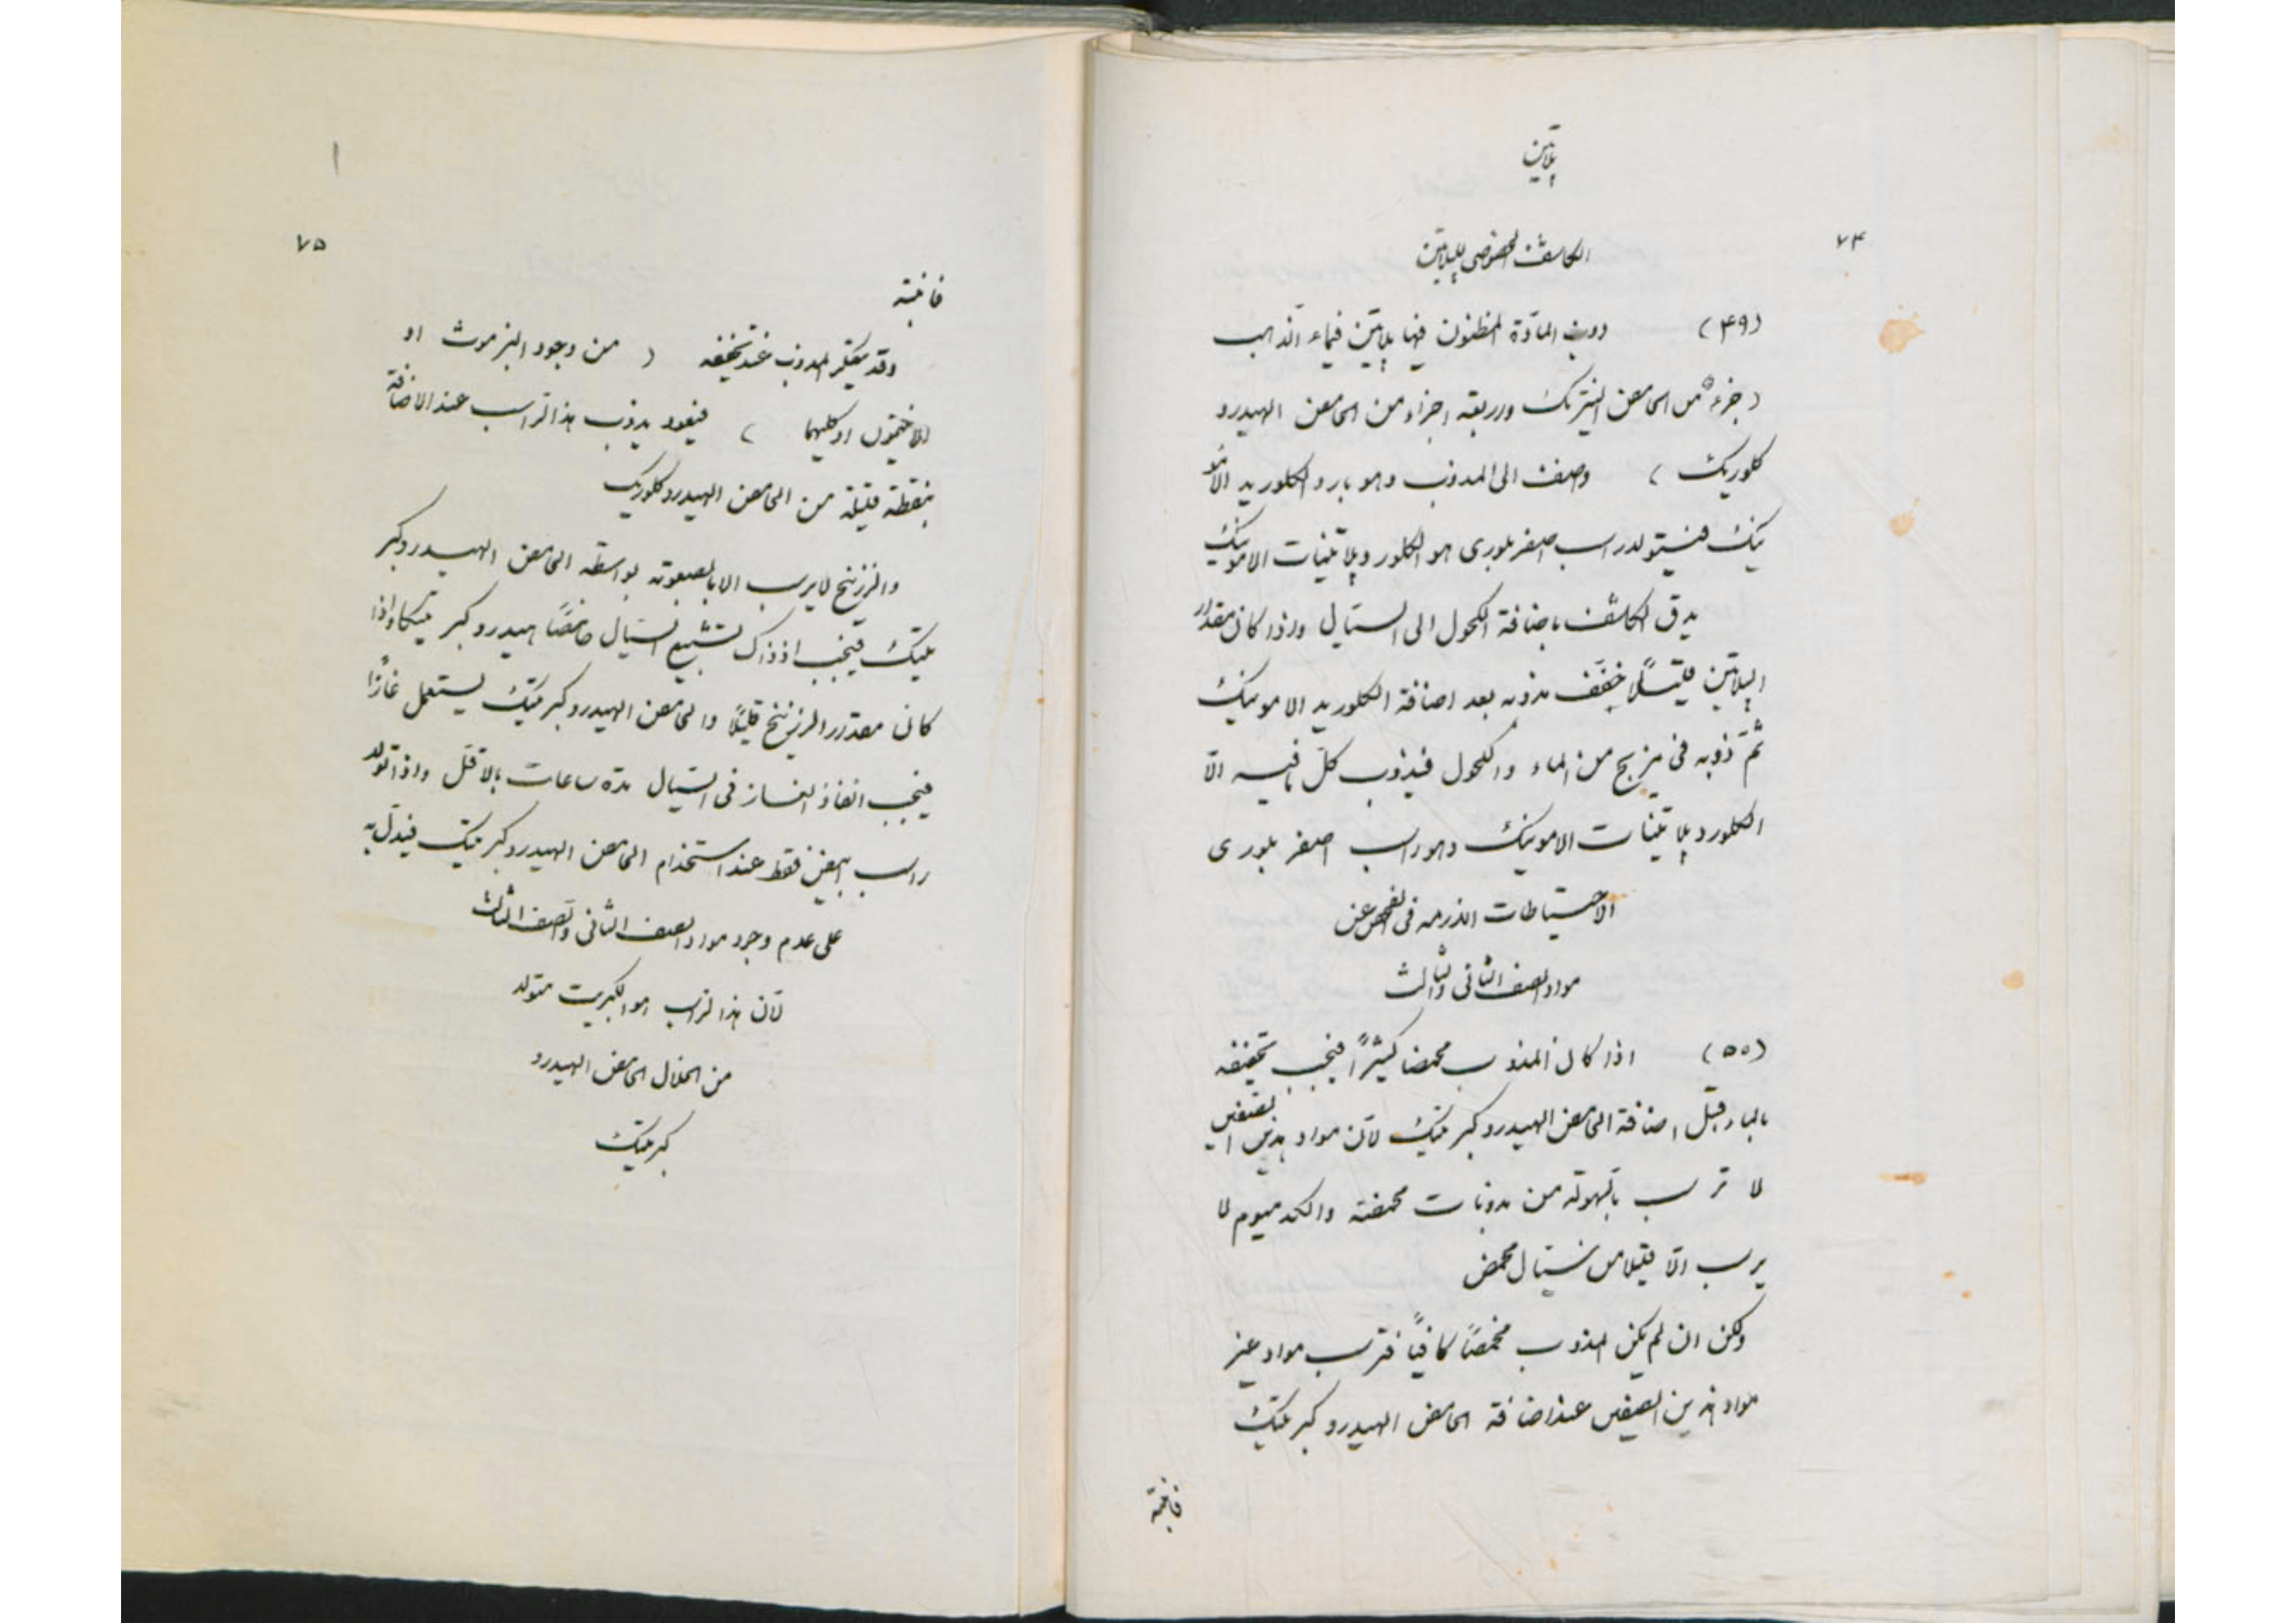 پلاتین
۷۴
الكاشف الخصوصى للپلاتین
(۴۹) ذوب المادّة المظنون فيها پلاتین فى ماء الذهب
(جزء من الحامض النیتریك واربعة اجزاء من الحامض الهیدرو
كلوریك) وضف الى المذوب وهو بارد الكلورید الامو
نیك فیتولد راسب اصفر بلورى هو الكلورو پلاتینات الامونیك
یدق الكاشف باضافة الكحول الى السیّال واذا كان مقدار
الپلاتین قلیلًا خفّف مذوبه بعد اضافة الكلورید الامونیك
ثمّ ذوبه فى مزیج من الماء والكحول فیذوب كلّ ما فیه الّا
الكلورو پلاتینات الامونیك وهو راسب اصفر بلورى
الاحتیاطات اللازمه فى الفحص عن
مواد الصف الثانى والثالث
(۵۰) اذا كان المذوب محمضا كثیرًا فیجب تخفیفه
بالماء قبل اضافة الحامض الهیدروكبریتیك لانّ مواد هذین الصفین
لا ترسب بالسّهولة من مذوبات محمضة والكدمیوم لا
یرسب الّا قلیلا من سیّال محمض
ولكن ان لم یكن المذوب محمضًا كافیًا فترسب مواد غیر
مواد هذین الصفین عند اضافة الحامض الهیدروكبریتیك
۷۵
وقد یعتكر المذوب عند تخفیفه (من وجود البزموث او
الانتیمون او كلیهما) فیعود یذوب هذا الراسب عند الاضافة
بنقطة قلیلة من الحامض الهیدروكلوریك
والزرنیخ لا یرسب الا بالصعوبة بواسطة الحامض الهیدروكبر
یتیك فیجب اذ ذاك تشبیع السیّال حامضًا هیدروكبریتیكا واذا
كان مقدار الزرنیخ قلیلًا والحامض الهیدروكبریتیك یستعمل غازًا
فیجب انفاذ الغاز فى السیّال مدة ساعات بالاقل واذا تولد
راسب ابیض فقط عند استخدام الحامض الهیدروكبریتیك فیدلّ به
على عدم وجود مواد الصف الثانى والصف الثالث
لانّ هذا الراسب هو الكبریت متولد
من انحلال الحامض الهیدرو
كبریتیك